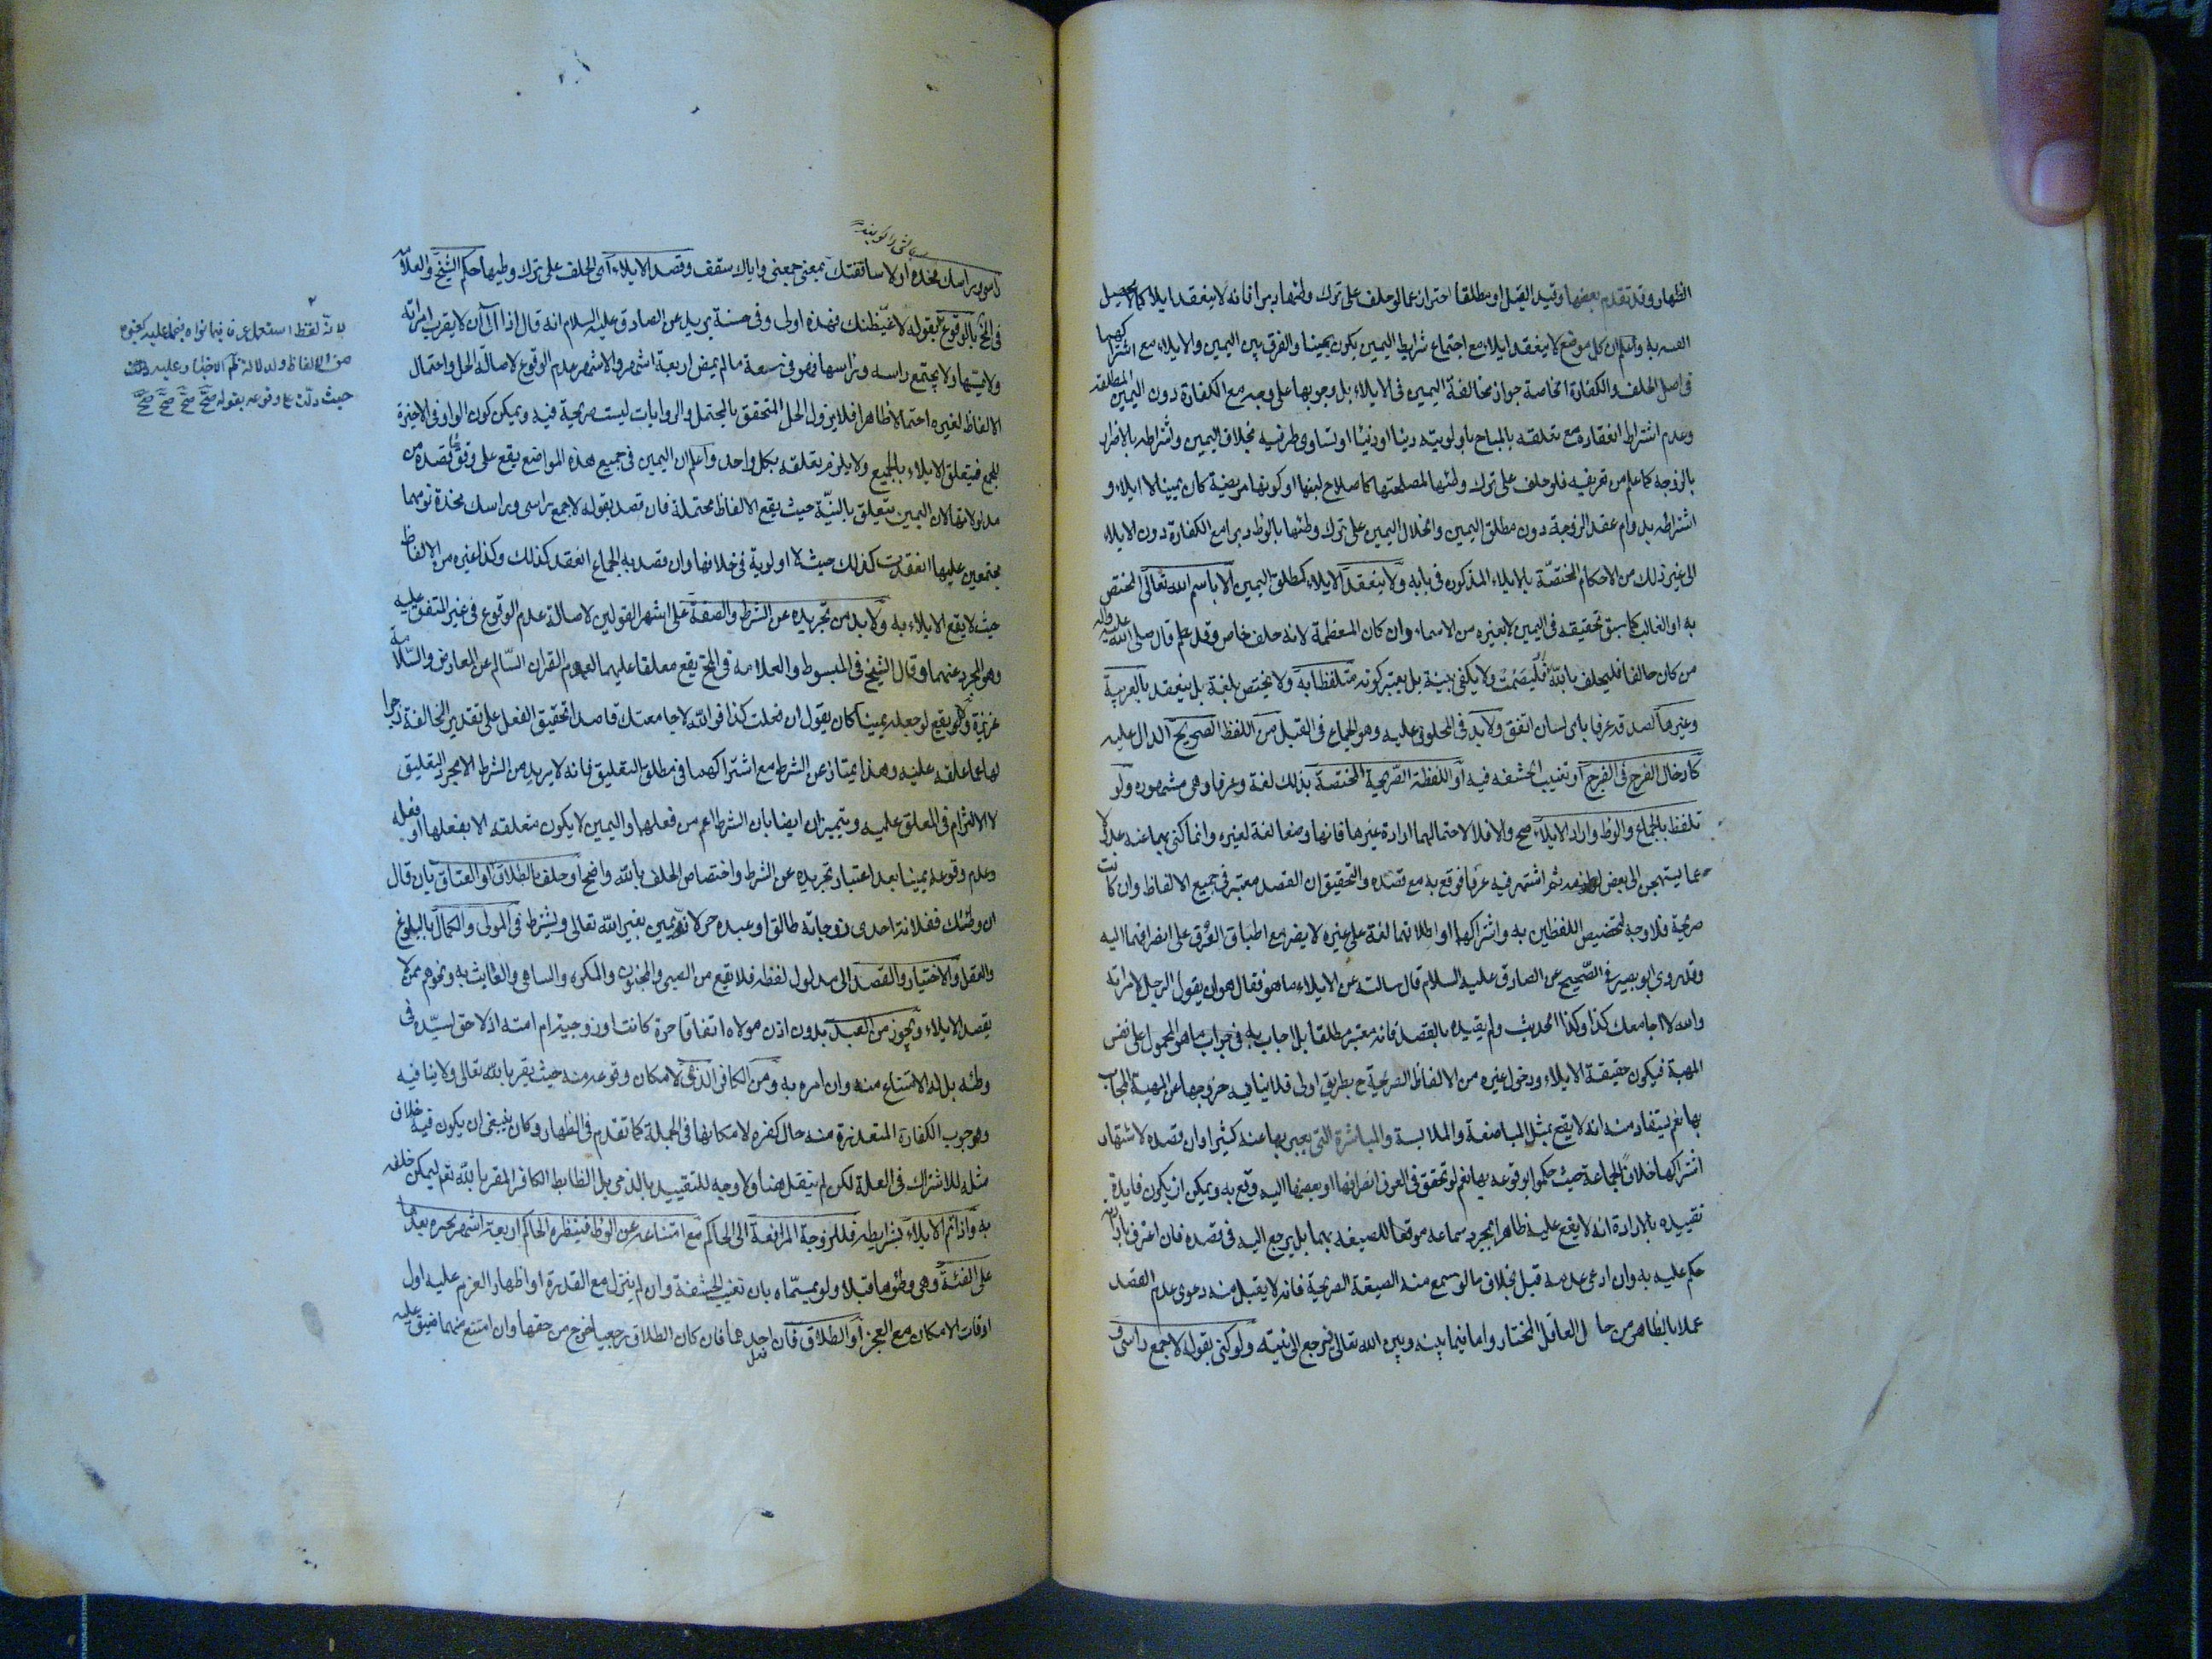 الظهار وقد تقدم بعضها وقيد القبل او مطلقا احترازعما لو حلف على ترك وطئها دبرا فانه لا ينعقد ايلاء كما لا يحصل
الفئة به واعلم ان كل موضع لا ينعقد ايلاء مع اجتماع شرايط اليمين يكون يمينا والفرق بين اليمين والايلاء مع اشتراكهما
في اصل الحلف والكفارة الخاصة جواز مخالفة اليمين في الايلاء بل وجوبها على وجه مع الكفارة دون اليمين المطلقة
وعدم اشتراط انعقاده مع تعلقه بالمباح باولويته دينا او دنيا او تساوى طرفيه بخلاف اليمين واشتراطه بالاضرار
بالزوجة كما علم من تعريفه فلو حلف على ترك وطئها لمصلحتها كاصلاح لبنها او كونها مريضة كان يمينا لا ايلاء و
اشتراطه بدوام عقد الزوجة دون مطلق اليمين وانحلال اليمين على ترك وطئها بالوطء دبرا مع الكفارة دون الايلاء
الى غير ذلك من الاحكام المختصّة بالايلاء المذكورة في بابه ولا ينعقد الايلاء كمطلق اليمين الا باسم الله تعالى المختص
به او الغالب كما سبق تحقيقه في اليمين لا بغيره من الاسماء وان كان المعظمة لانه حلف خاص وقد علم قال صلى الله عليه واله
من كان حالفا فليحلف بالله او فليصمت ولا يكفى بنية بل يعتبر كونه متلفظا به ولا يختص بلغة بل ينعقد بالعربية
وغيرها لصدقه عرفا باى لسان اتفق ولا بد في المحلوف عليه وهو الجماع في القبل من اللفظ الصريح الدال عليه
كادخال الفرج في الفرج او تغيب الحشفه فيه او اللفظة الصّريحة المختصة بذلك لغة وعرفا وهى مشهوره ولو
تلفظ بالجماع والوطء واراد الايلاء صح والا فلا لاحتمالهما ارادة غيرها فانها وضعا لغة لغيره وانما كنى بهما عنه عدولا
عما يستهجن الى بعض ثم اشتهر فيه عرفا فوقع به مع قصده والتحقيق ان القصد معتبر في جميع الالفاظ وان كانت
صريحة فلا وجه لتخصيص اللفظين به واشتراكهما او اطلاقهما لغة على غيره لا يضر مع اطباق العرف على انصرافهما اليه
وقد روى ابو بصير في الصّحيح عن الصادق عليه السلام قال سالته عن الايلاء ما هو فقال هو ان يقول الرجل لامراته
والله لا اجامعك كذا وكذا الحديث ولم يقيده بالقصد فانه معتبر مطلقا بل اجاب به في جواب ما هو المحمول على نفس
المهية فيكون حقيقة الايلاء ودخول غيره من الالفاظ الصريحة ح بطريق اولى فلا ينافيه خروجها عن المهية المجاب
بها نعم يستفاد منه انه لا يقع بمثل المباضعة والملابسة والمباشرة التى يعبر بها عنه كثيرا وان قصده لاشتهار
اشتراكها خلافا لجماعة حيث حكموا بوقوعه بها نعم لو تحقق في العرف انصرافها او بعضها اليه وقع به ويمكن ان يكون فايدة
تقييده بالارادة انه لا يقع عليه ظاهرا بمجرد سماعه موقعا للصيغه بهما بل يرجع اليه في قصده فان اعترف بارادته
حكم عليه به وان ادعى عدمه قبل بخلاف ما لو سمع منه الصيغة الصريحة فانه لا يقبل منه دعوى عدم القصد
عملا بالظاهر من حال العاقل المختار واما فيما بينه وبين الله تعالى فيرجع الى نيته ولو كنى بقوله لا اجمع راسى و
راسى وراسك مخدة او لا ساقفتك بمعنى جمعنى واياك سقف وقصد الايلاء اى الحلف على ترك وطيها حكم الشّيخ والعلامة
في المخ بالوقوع لقوله لا غيّظنك فهذه اولى وفي حسنة بريد عن الصادق عليه السلام انه قال اذا آلى ان لا يقرب امراته
ولا يمسّها ولا يجتمع راسه وراسها فهو في سعة ما لم يمض اربعة اشهر والاشهر عدم الوقوع لاصالة الحل واحتمال
الالفاظ لغيره احتمالا ظاهرا فلا يزول الحل المتحقق بالمحتمل والروايات ليست صريحة فيه ويمكن كون الواو في الاخيرة
للجمع فيتعلق الايلاء بالجميع ولا يلزم تعلقه بكل واحد واعلم ان اليمين في جميع هذه المواضع يقع على وفق ما قصده من
مدلولاتها لان اليمين تتعلق بالنيّة حيث يقع الالفاظ محتملة فان قصد بقوله لا جمع راسى وراسك مخدة نومهما
مجتمعين عليها انعقدت كذلك حيث لا اولوية في خلافها وان قصد به الجماع انعقد كذلك وكذا غيره من الالفاظ
حيث لا يقع الايلاء به ولا بد من تجريده عن الشرط والصفة على اشهر القولين لاصالة عدم الوقوع في غير المتفق عليه
وهو المجرد عنهما وقال الشيخ في المبسوط والعلامه في المخ يقع معلقا عليهما لعموم القران السّالم عن المعارض والسّلامة
عزيزة ولا يقع لو جعله يمينا كان يقول ان فعلت كذا فوالله لا جامعتك قاصدا تحقيق الفعل على تقدير المخالفة زجرا
لها عما علقه عليه وهذا يمتاز عن الشرط مع اشتراكهما في مطلق التعليق فانه لا يريد من الشرط الا مجرد التعليق
لا الالتزام في المعلق عليه ويتميزان ايضا بان الشرط اعم من فعلهما واليمين لا يكون متعلقه الا بفعلها او فعله
وعدم وقوعه يمينا بعد اعتبار تجريده عن الشرط واختصاص الحلف بالله واضح او حلف بالطلاق او العتاق بان قال
ان وطئتك ففلانة احدى زوجاته طالق او عبده حر لانه يمين بغير الله تعالى ويشترط في المولى والكمال بالبلوغ
والعقل والاختيار والقصد الى مدلول لفظه فلا يقع من الصبى والمجنون والمكره والساهى والعابث به ونحوهم ممن لا
يقصد الايلاء ويجوز من العبد بدون اذن مولاه اتفاقا حرة كانت او زوجته ام امته اذ لا حق لسيّده في
وطئه بل له الامتناع منه وان امره به ومن الكافر الذمى لامكان وقوعه منه حيث يقر بالله تعالى ولا ينافيه
وجوب الكفارة المتعذرة منه حال كفره لامكانها في الجملة كما تقدم في الظهار وكان ينبغى ان يكون فيه خلاف
مثله للاشتراك في العلة لكن لم ينقل هنا ولا وجه للتقييد بالذمى بل الظابط الكافر المقر بالله تعم ليمكن حلفه
به واذا تم الايلاء بشرايطه فللزوجة المرافعة الى الحاكم مع امتناعه عن الوطء فينظره الحاكم اربعة اشهر ثم يجبره بعدها
على الفئة وهى وطئوها قبلا ولو بمسمّاه بان تغيب الحشفة وان لم ينزل مع القدرة او اظهار العزم عليه اول
اوقات الامكان مع العجز او الطلاق فان فعل احدهما فان كان الطلاق رجعيا خرج من حقها وان امتنع منهما ضيق عليه
لانه لفظ استعمل عرفا فيما نواه فيحمل عليه كغيره
من الالفاظ ولدلالة ظم الاخبار عليه
حيث دلّت على وقوعه بقوله صح صح صح صح صح